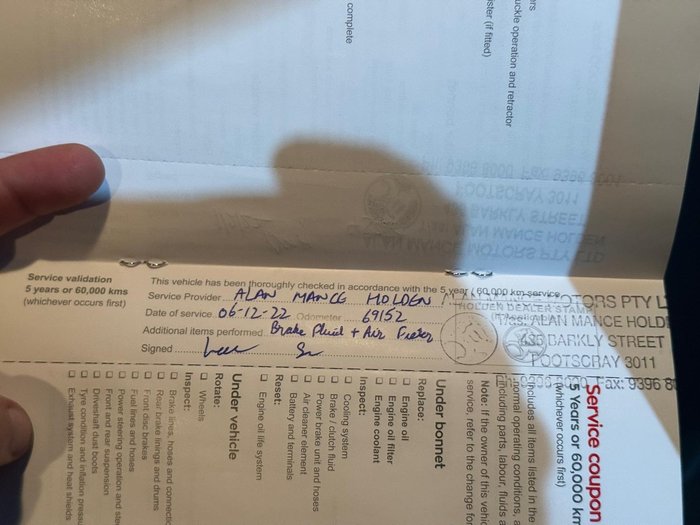 complete
ster (if fitted)
uckle operation and retractor
ers
Service validation
5 years or 60,000 kms
(whichever occurs first)
This vehicle has been thoroughly checked in accordance with the 5 year / 60,000 km service
Service Provider ALAN MANCE HOLDEN
Date of service 06-12-22 Odometer 69152
Additional items performed Brake Fluid + Air Fielter
Signed
HOLDEN DEALER STAMP
MOTORS PTY L
ALAN MANCE HOLD
BARKLY STREET
FOOTSCRAY 3011
Fax: 9396 80
Service coupon
5 Years or 60,000 km
(whichever occurs first)
Includes all items listed in the
normal operating conditions, a
(including parts, labour, fluids a
Note: If the owner of this vehic
service, refer to the change for
Under bonnet
Replace:
Engine oil
Engine oil filter
Engine coolant
Inspect:
Cooling system
Brake / clutch fluid
Power brake unit and hoses
Air cleaner element
Battery and terminals
Reset:
Engine oil life system
Under vehicle
Rotate:
Wheels
Inspect:
Brake lines, hoses and connectio
Rear brake linings and drums
Front disc brakes
Fuel lines and hoses
Power steering operation and stee
Front and rear suspension
Driveshaft dust boots
Tyre condition and inflation pressu
Exhaust system and heat shields